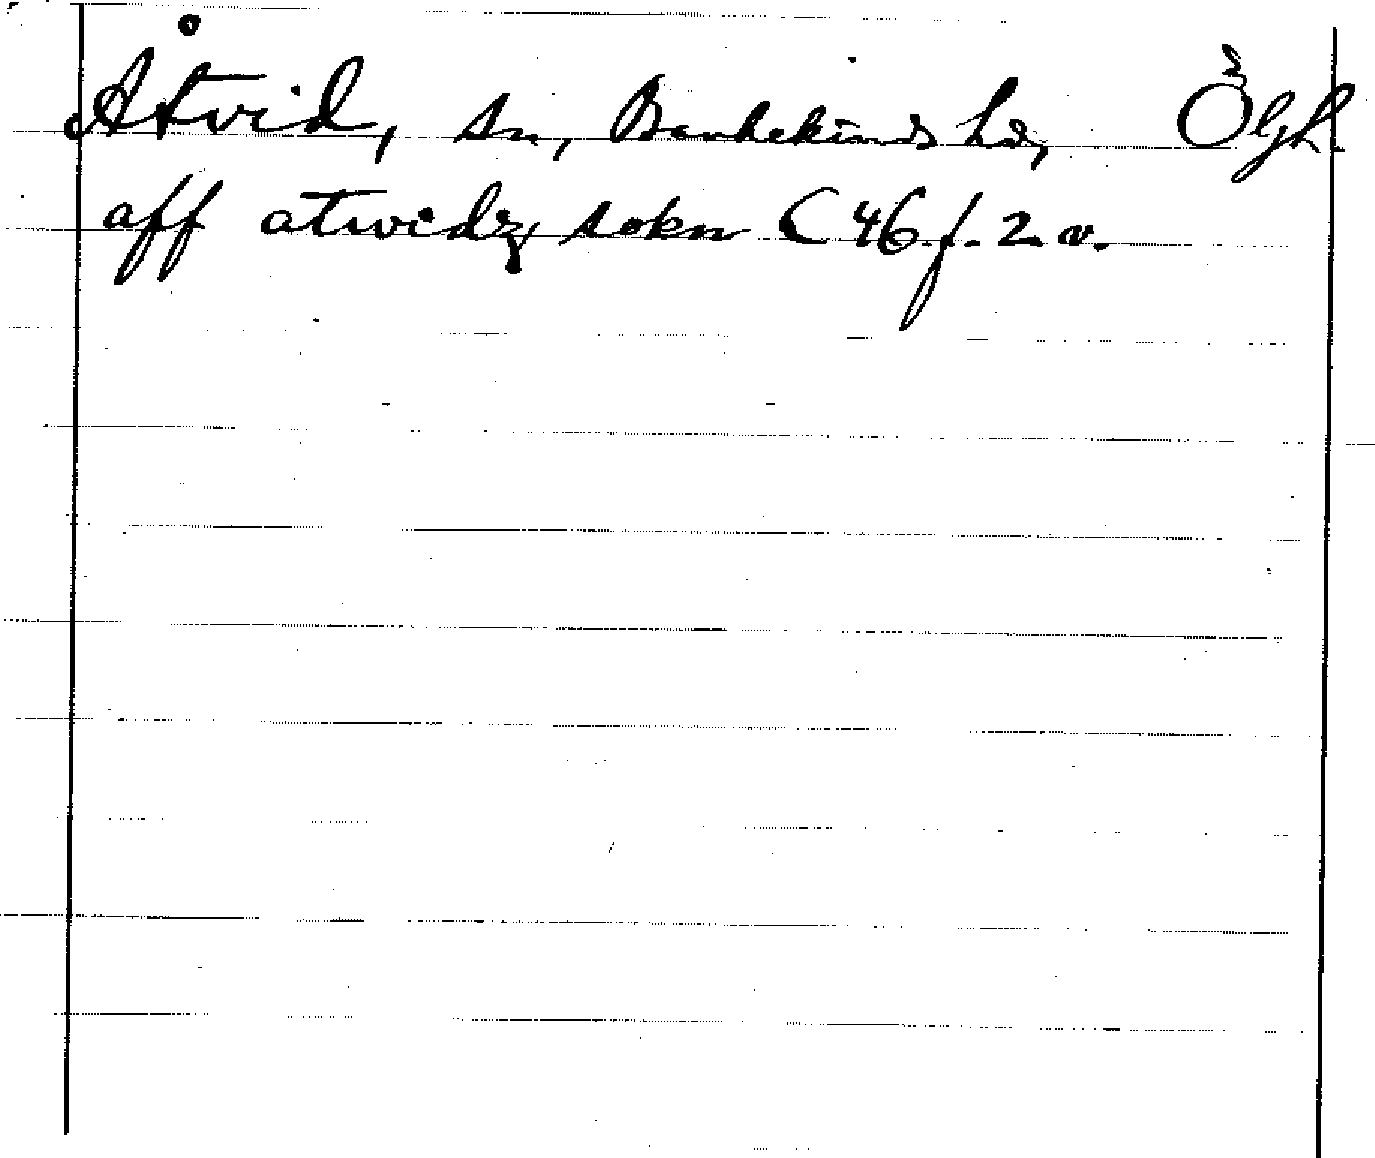 Åtvid, sn, Bankekinds hd, Ögl.
aff atwidz sokn C 46 f. 2 v.